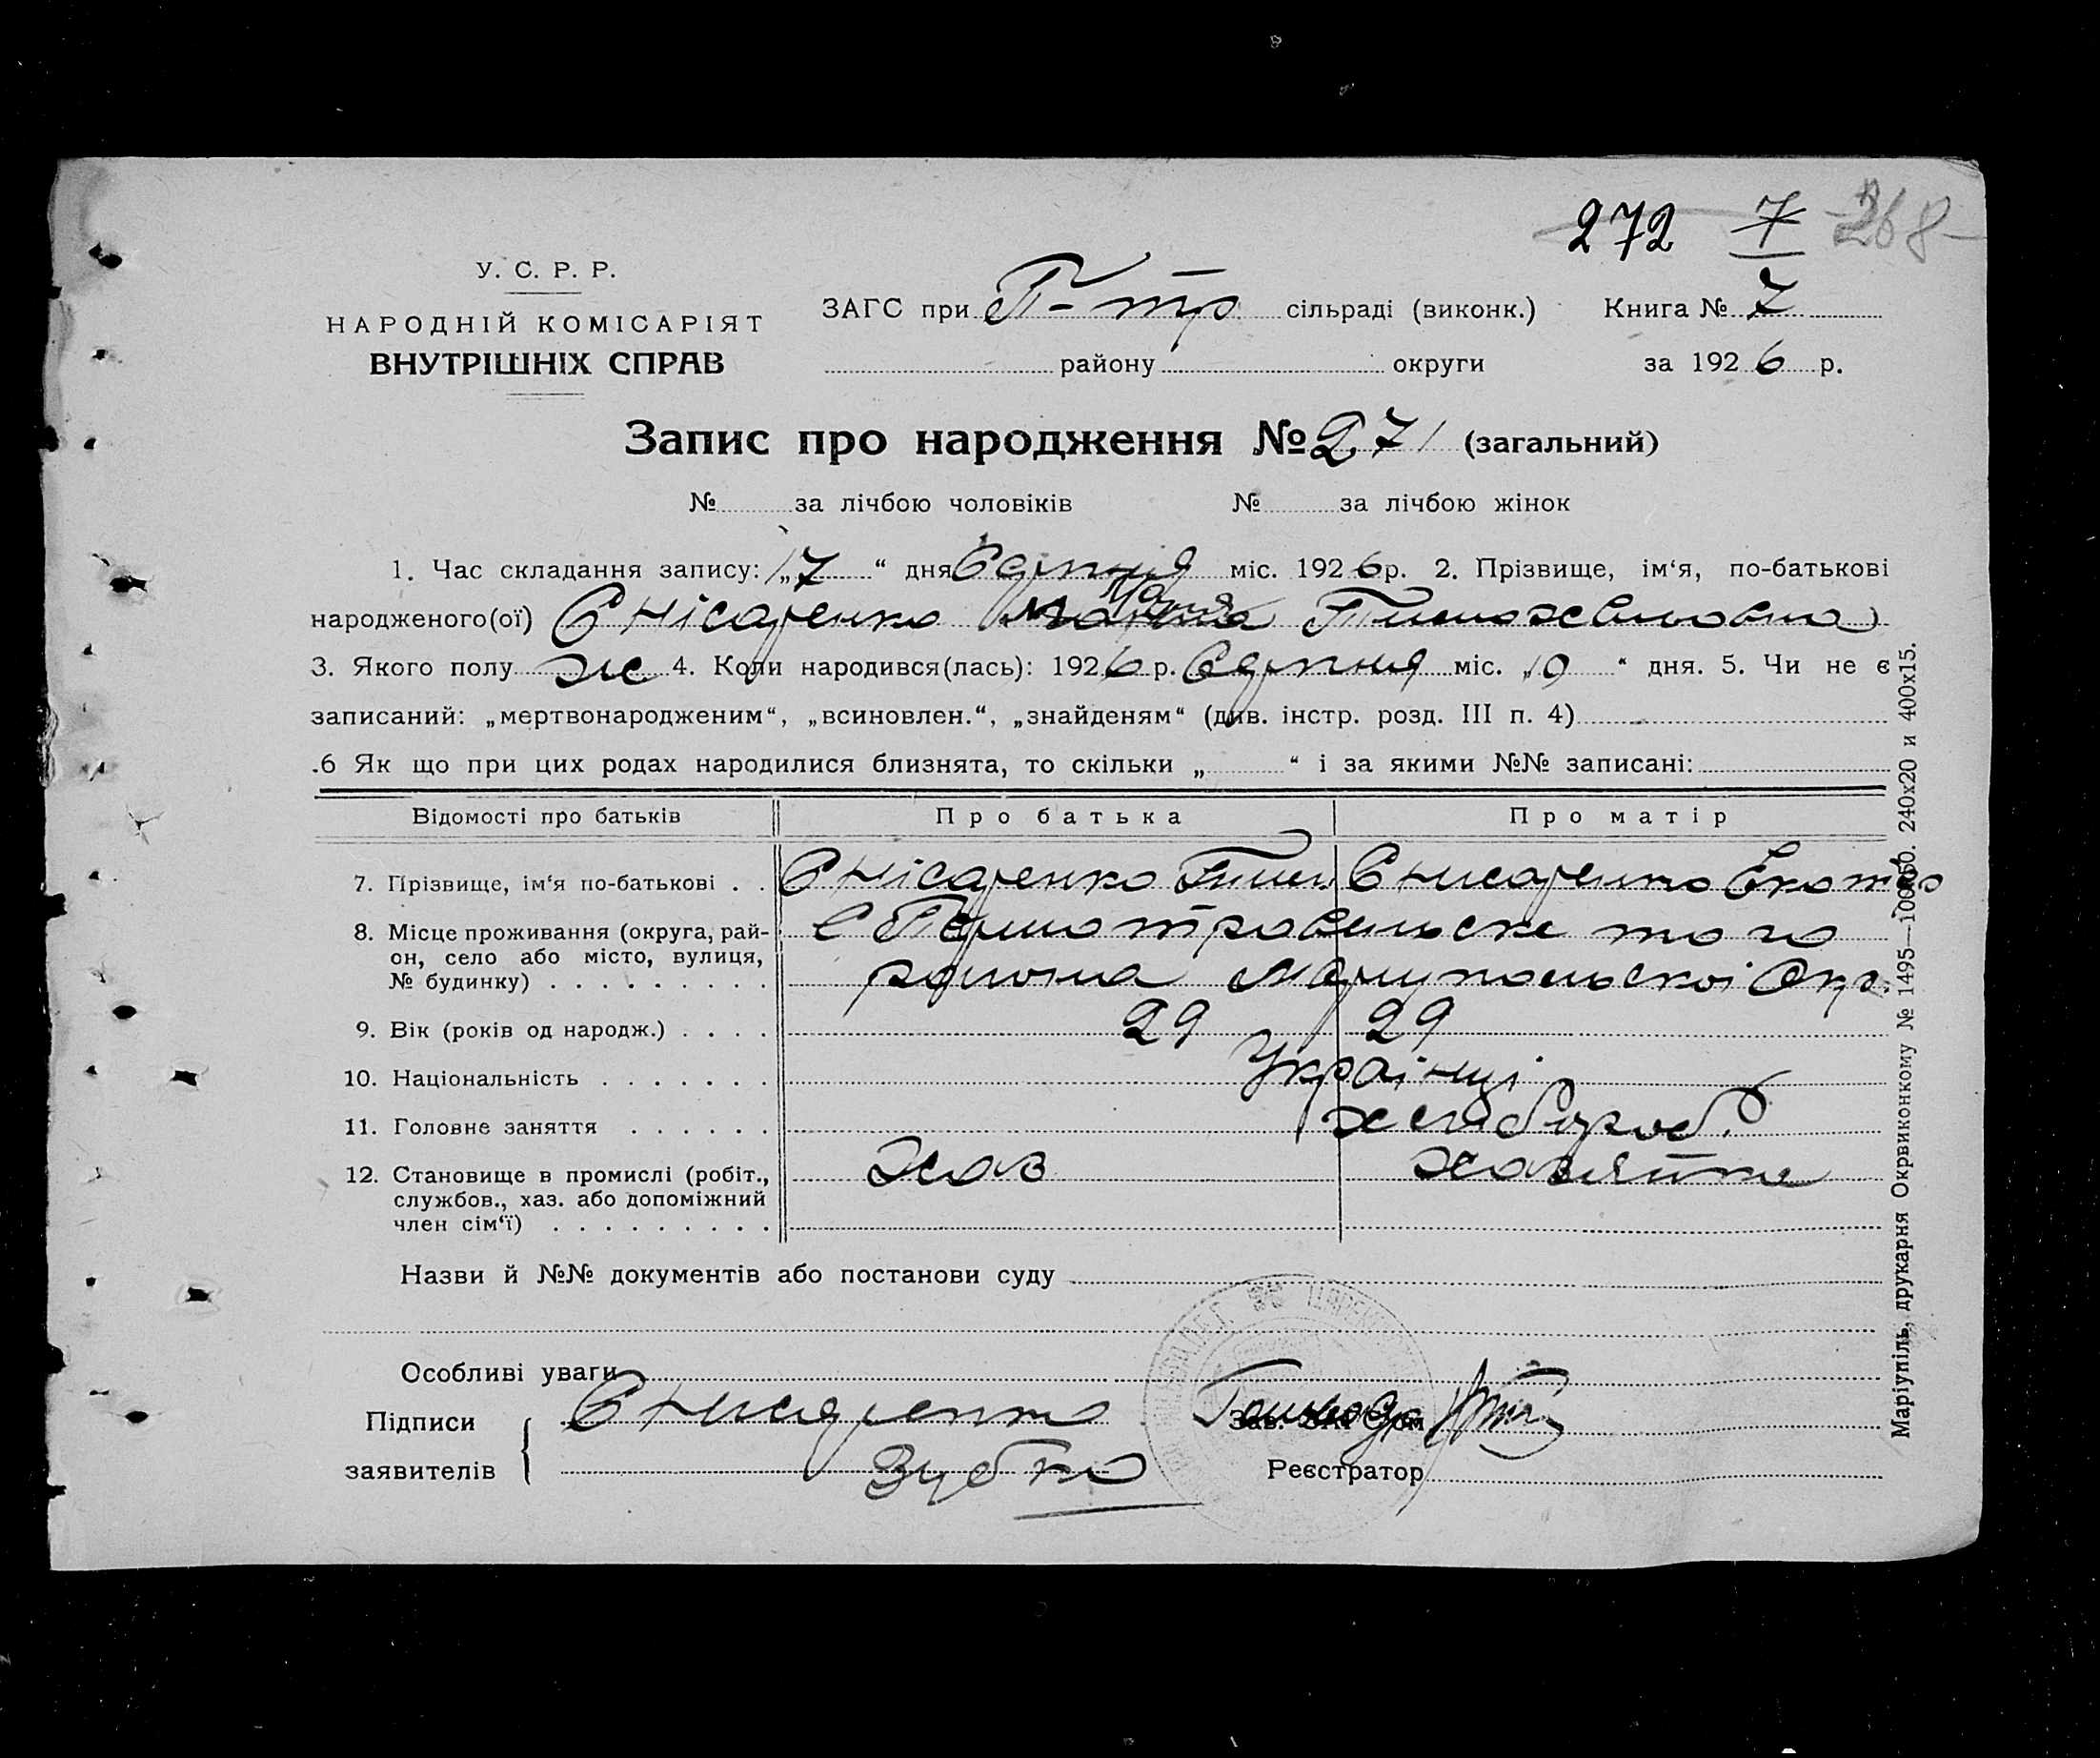 272 7 268
У. С. Р. Р.
НАРОДНІЙ КОМІСАРІЯТ
ВНУТРІШНІХ СПРАВ
ЗАГС при П-тр сільраді (виконк.) Книга № 7
району округи за 1926 р.
Запис про народження № 271 (загальний)
№ за лічбою чоловіків № за лічбою жінок
1. Час складання запису: „17“ дня Серпня міс. 1926 р. 2. Прізвище, ім‘я, по-батькові
народженого(ої) Снісаренко Марія
3. Якого полу ж 4. Коли народився(лась): 1926 р. Серпня міс. „10“ дня. 5. Чи не є
записаний: „мертвонародженим“, „всиновлен.“, „знайденям“ (див. інстр. розд. III п. 4)
.6 Як що при цих родах народилися близнята, то скільки „ “ і за якими №№ записані:
Відомості про батьків Про батька Про матір
7. Прізвище, ім‘я по-батькові . . Снісаренко Тим. Снисаренко Екатер
8. Місце проживання (округа, рай-
он, село або місто, вулиця,
№ будинку) . . . . . . . . .
того
района Маріупольскоі Окр.
9. Вік (років од народж.) . . . . 29 29
10. Національність . . . . . . . Українці
11. Головне заняття . . . . . . хлібороб.
12. Становище в промислі (робіт.,
службов., хаз. або допоміжний
член сім‘ї) . . . . . . . . .
Хоз хозяйка
Назви й №№ документів або постанови суду
Особливі уваги
Підписи
заявителів
Снисаренко
Зубко
Реєстратор
Маріупіль, друкарня Окрвиконкому № 1495—10000. 240х20 и 400х15.